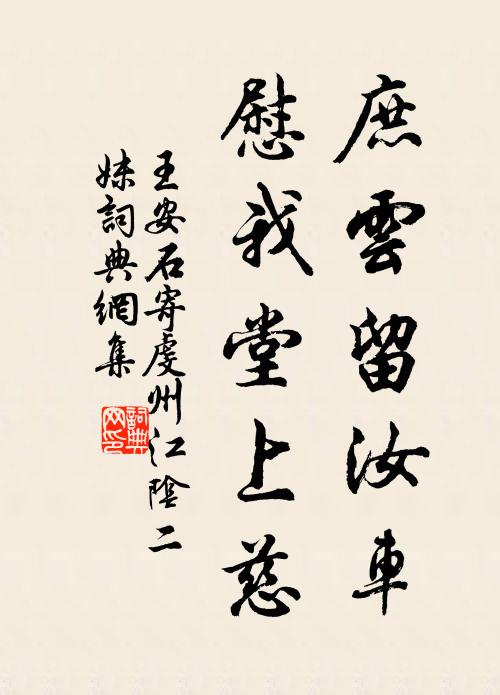 庶雲留汝車
慰我堂上慈
王安石寄虔州江陰二
妹詞典網集
詞典
网印